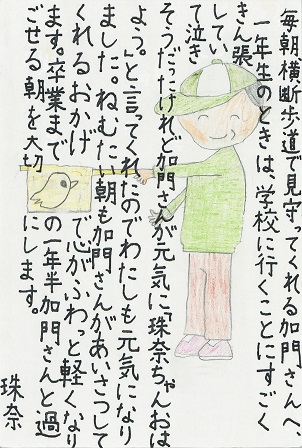 毎朝横断歩道で見守ってくれる加門さんへ、
一年生のときは、学校に行くことにすごく
きん張
していて泣き
そうだったけれど加門さんが元気に「珠奈ちゃんおは
よう。」と言ってくれたのでわたしも元気になり
ました。ねむたい朝も加門さんがあいさつして
くれるおかげで心がふわっと軽くなり
ます。卒業までの一年半加門さんと過
ごせる朝を大切にします。
珠奈